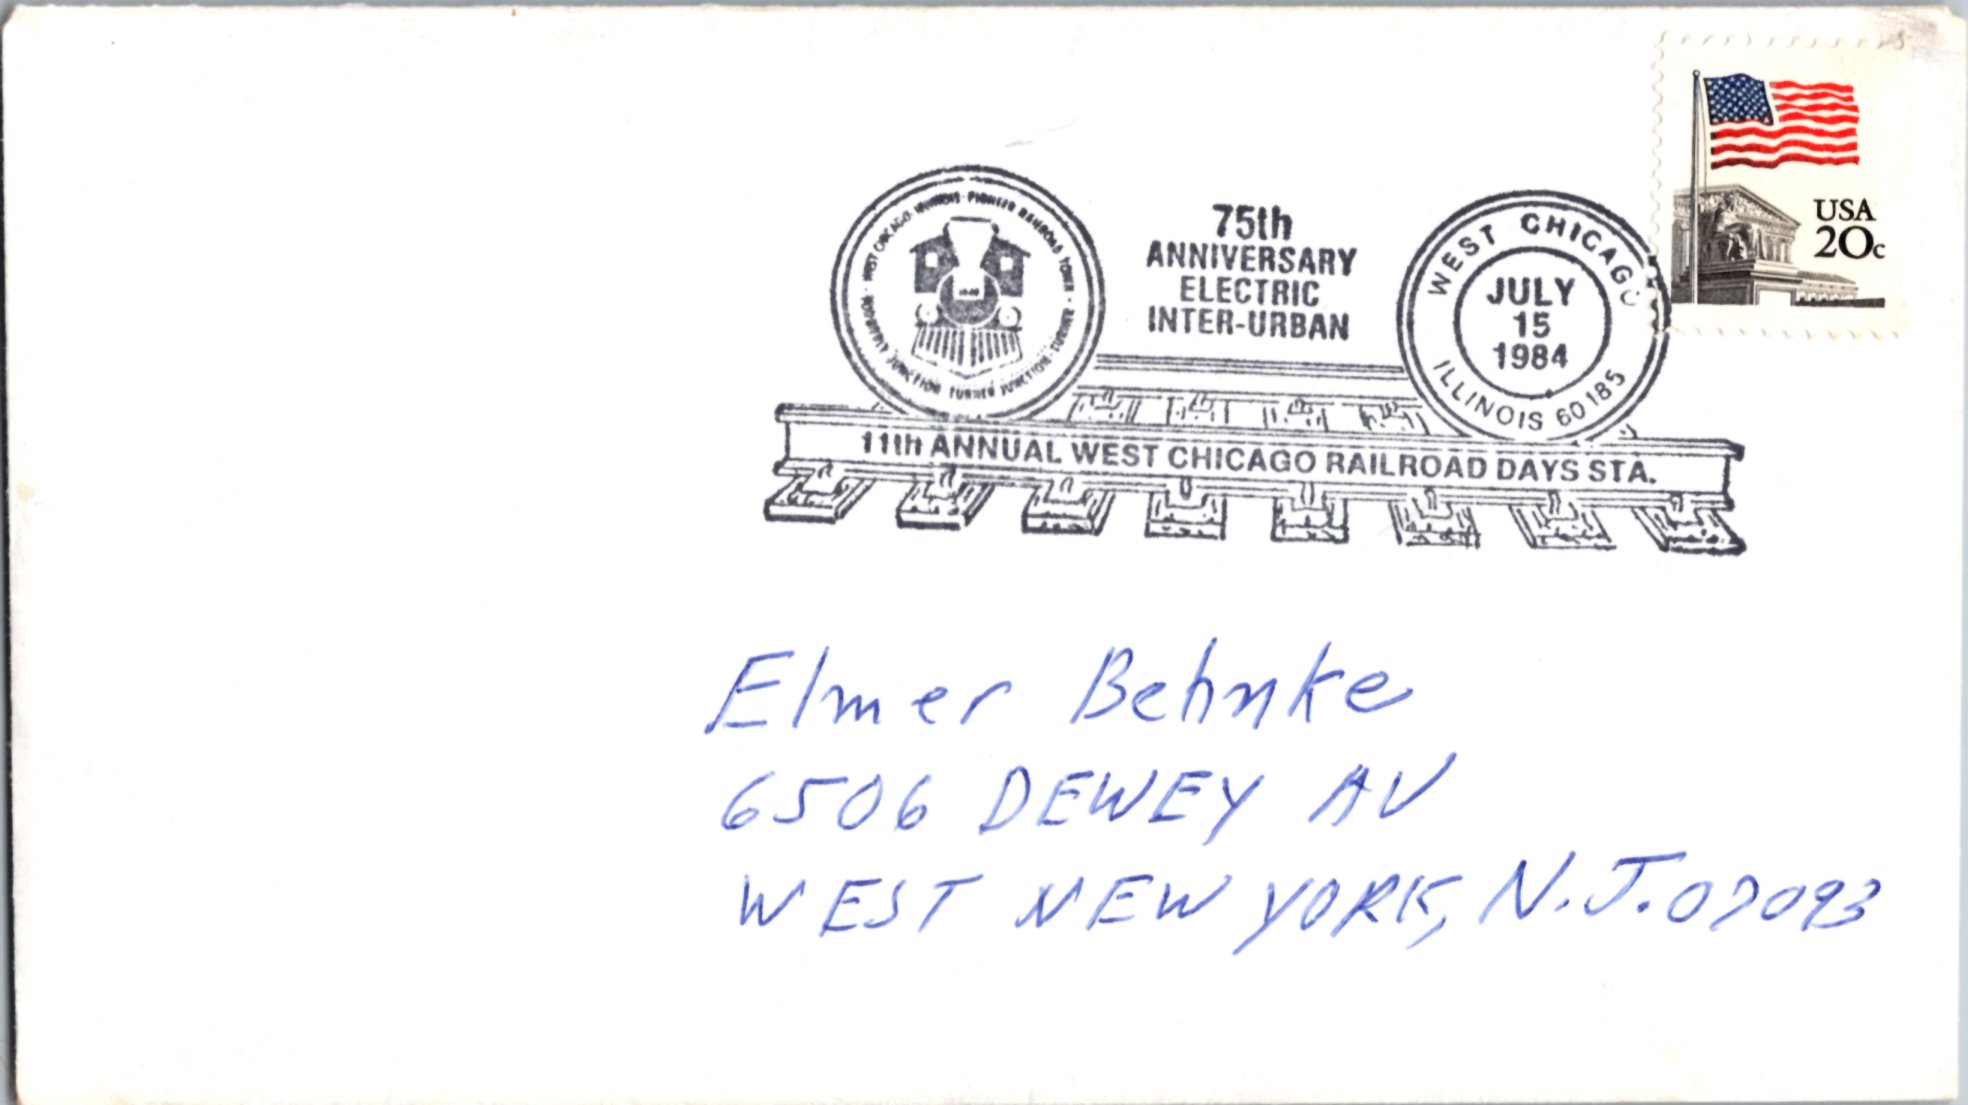 WEST CHICAGO · ILLINOIS · PIONEER RAILROAD TOWN · TURNER · TURNER JUNCTION · JUNCTION
75th
ANNIVERSARY
ELECTRIC
INTER-URBAN
WEST CHICAGO
JULY
15
1984
ILLINOIS 60185
USA
20c
11th ANNUAL WEST CHICAGO RAILROAD DAYS STA.
Elmer Behnke
6506 DEWEY AV
WEST NEW YORK, N.J. 07093